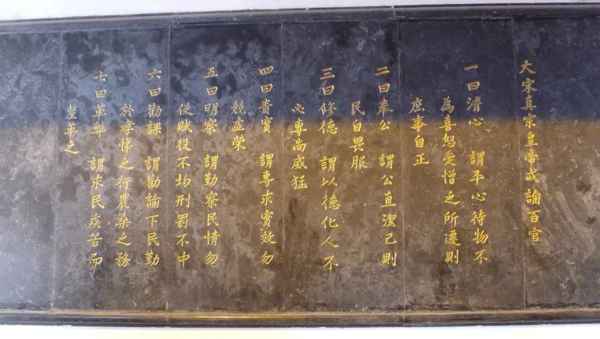 大宋真宗皇帝諭百官
一曰清心 謂平心待物不
為喜怒愛憎之所遷則
庶事自正
二曰奉公 謂公直潔己則
民自畏服
三曰修德 謂以德化人不
必專尚威猛
四曰責實 謂專求實效勿
競虛榮
五曰明察 謂勤察民情勿
使賦役不均刑罰不中
六曰勸課 謂勸諭下民勤
於孝悌之行農桑之務
七曰革弊 謂求民疾苦而
釐革之